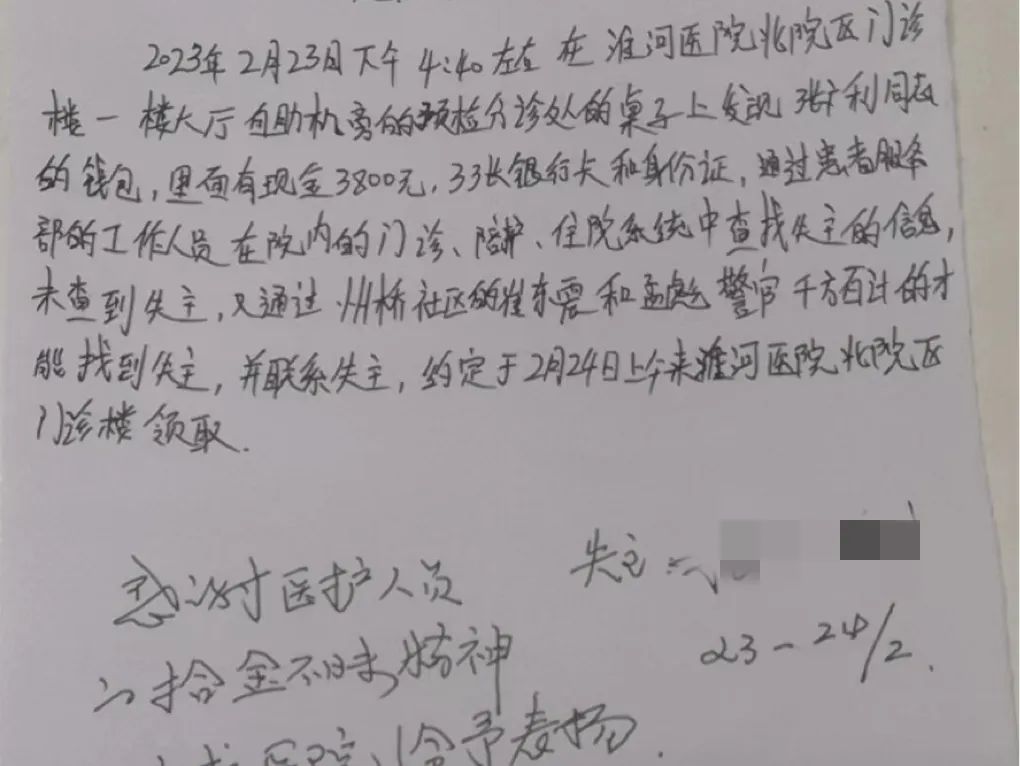 2023年2月23日下午4:40左右在淮河医院北院区门诊
楼一楼大厅自助机旁的预检分诊处的桌子上发现张广利同志
的钱包,里面有现金3800元,33张银行卡和身份证,通过患者服务
部的工作人员在院内的门诊、陪护、住院系统中查找失主的信息,
未查到失主,又通过州桥社区的崔东震和孟彪警官千方百计的才
能找到失主,并联系失主,约定于2月24日上午来淮河医院北院区
门诊楼领取.
感谢对医护人员
失主:
拾金不昧精神
23-24/2.
医院给予表扬.